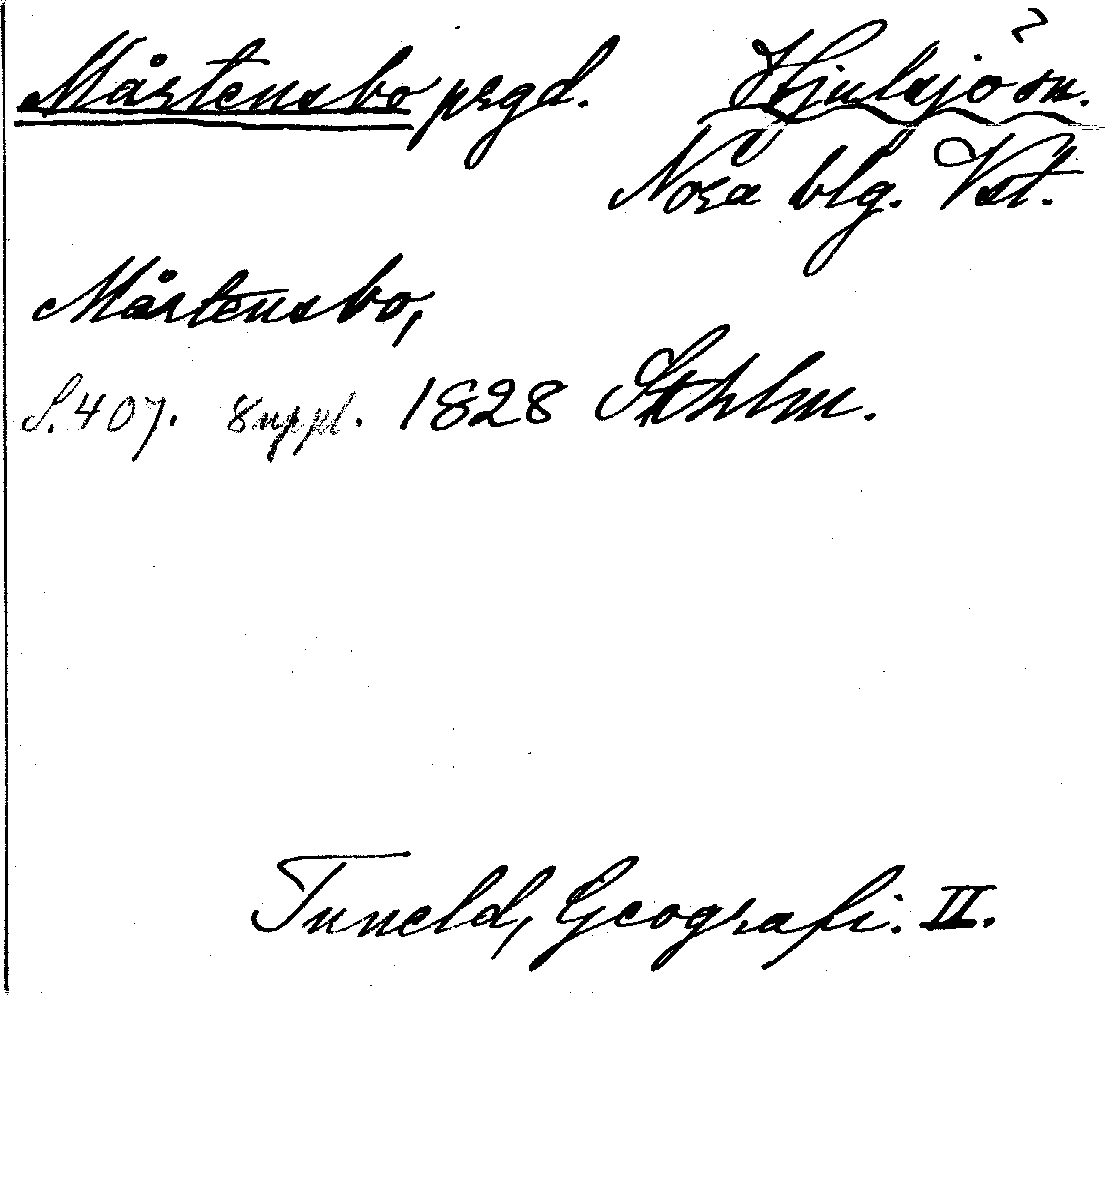 Mårtensbo prgd. Hjulsjö sn. ?
Nora blg. Vst.
Mårtensbo,
S. 407. Suppl. 1828 Sthlm.
Tuneld, Geografi. II.